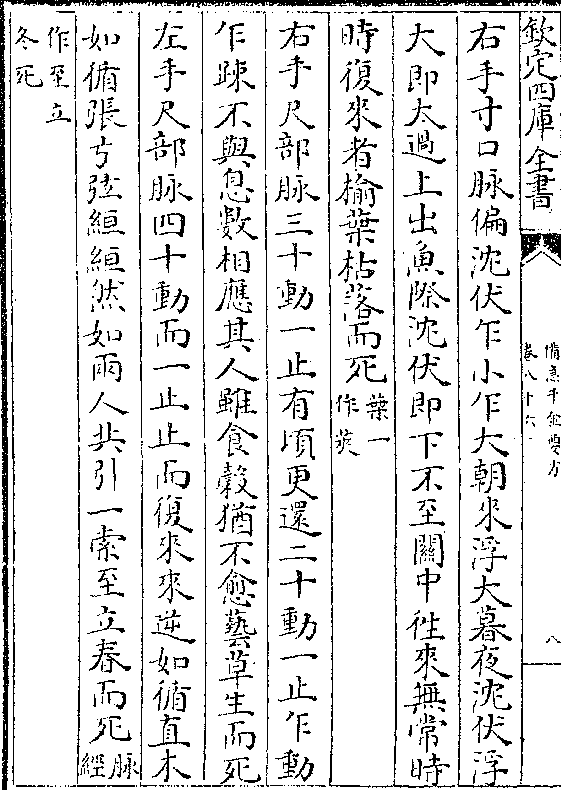 欽定四庫全書
備急千金要方
卷八十六
八
右手寸口脉偏沈伏乍小乍大朝來浮大暮夜沈伏浮
大即太過上出魚際沈伏即下不至關中徃來無常時
時復來者榆葉枯落而死葉一作莢
右手尺部脉三十動一止有頃更還二十動一止乍動
乍踈不與息數相應其人雖食穀猶不愈蘩草生而死
左手尺部脉四十動而一止止而復來來逆如循直木
如循張弓弦絙絙然如兩人共引一索至立春而死脉經
作至立冬死